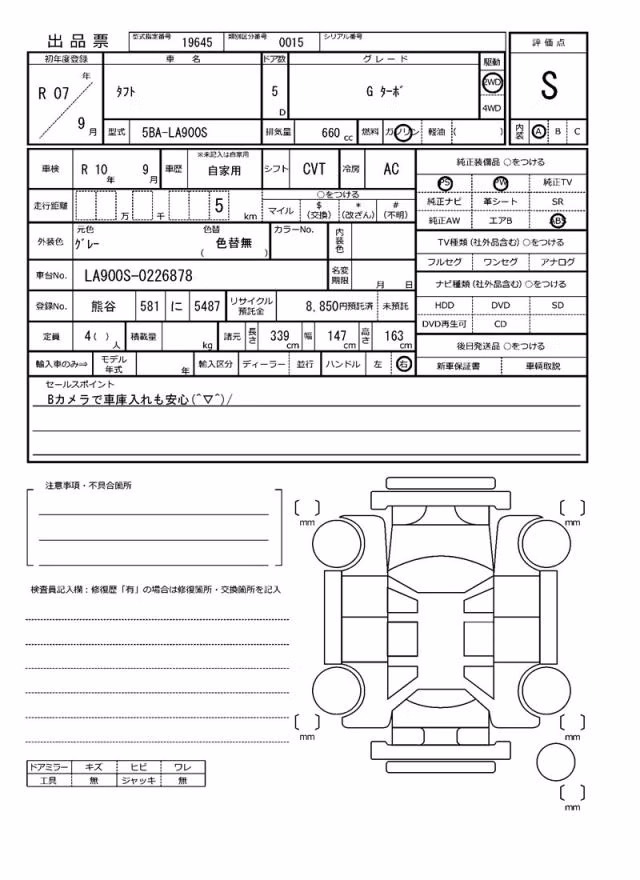 出品票 型式指定番号 19645 類別区分番号 0015 シリアル番号
評価点
S
内装 A B C
初年度登録 車名 ドア数 グレード 駆動
R 07 年 9 月 タフト 5 D G ターボ 2WD 4WD
型式 5BA-LA900S 排気量 660 cc 燃料 ガソリン 軽油 ( )
車検 R 10 年 9 月 車歴 ※未記入は自家用 自家用 シフト CVT 冷房 AC
走行距離 万 千 5 km ○をつける
マイル $(交換) *(改ざん) #(不明)
外装色 元色 グレー 色替 色替無 ( ) カラーNo. 内装色
車台No. LA900S-0226878 名変期限 月 日
登録No. 熊谷 581 に 5487 リサイクル預託金 8,850円預託済 未預託
定員 4 ( ) 人 積載量 kg 諸元 長さ 339 cm 幅 147 cm 高さ 163 cm
輸入車のみ⇒ モデル年式 年 輸入区分 ディーラー 並行 ハンドル 左 右
純正装備品 ○をつける
PS PW 純正TV
純正ナビ 革シート SR
純正AW エアB ABS
TV種類 (社外品含む) ○をつける
フルセグ ワンセグ アナログ
ナビ種類 (社外品含む) ○をつける
HDD DVD SD
DVD再生可 CD
後日発送品 ○をつける
新車保証書 車輌取説
セールスポイント
Bカメラで車庫入れも安心(^▽^)/
注意事項・不具合箇所
検査員記入欄：修復歴「有」の場合は修復箇所・交換箇所を記入
ドアミラー キズ ヒビ ワレ
工具 無 ジャッキ 無
[ ] mm [ ] mm
[ ] mm [ ] mm
[ ] mm